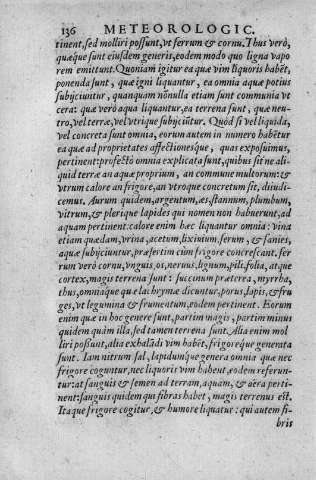 136 METEOROLOGIC.
tinent, sed molliri possunt, vt ferrum & cornu. Thus verò,
quæque sunt eiusdem generis, eodem modo quo ligna vapo
rem emittunt. Quoniam igitur ea quæ vim liquoris habēt,
ponenda sunt, quæ igni liquantur, ea omnia aquæ potius
subijciuntur, quanquam nōnulla etiam sunt communia vt
cera: quæ verò aqua liquantur, ea terrena sunt, quæ neu-
tro, vel terræ, vel vtrique subijciūtur. Quòd si vel liquida,
vel concreta sunt omnia, eorum autem in numero habētur
ea quæ ad proprietates affectionesque, quas exposuimus,
pertinent: profectò omnia explicata sunt, quibus sit ne ali-
quid terræ an aquæ proprium, an commune multorum: &
vtrum calore an frigore, an vtroque concretum sit, diiudi-
cemus. Aurum quidem, argentum, æs, stannum, plumbum,
vitrum, & plerique lapides qui nomen non habuerunt, ad
aquam pertinent. calore enim hæc liquantur omnia: vina
etiam quædam, vrina, acetum, lixiuium, serum, & sanies,
aquæ subijciuntur, præsertim cùm frigore concrescant. fer
rum verò cornu, vnguis, os, neruus, lignum, pili, folia, atque
cortex, magis terrena sunt: succinum præterea, myrrha,
thus, omnaque quæ lacrymæ dicuntur, porus, lapis, & fru
ges, vt legumina & frumentum, eodem pertinent. Eorum
enim quæ in hoc genere sunt, partim magis, partim minus
quidem quàm illa, sed tamen terrena sunt. Alia enim mol
liri possunt, alia exhaladi vim habēt, frigoreque generata
sunt. Iam nitrum sal, lapidumque genera omnia quæ nec
frigore coguntur, nec liquoris vim habent, eodem referun-
tur: at sanguis & semen ad terram, aquam, & aëra perti-
nent: sanguis quidem qui fibras habet, magis terrenus est.
Itaque frigore cogitur, & humore liquatur: qui autem fi-
bris